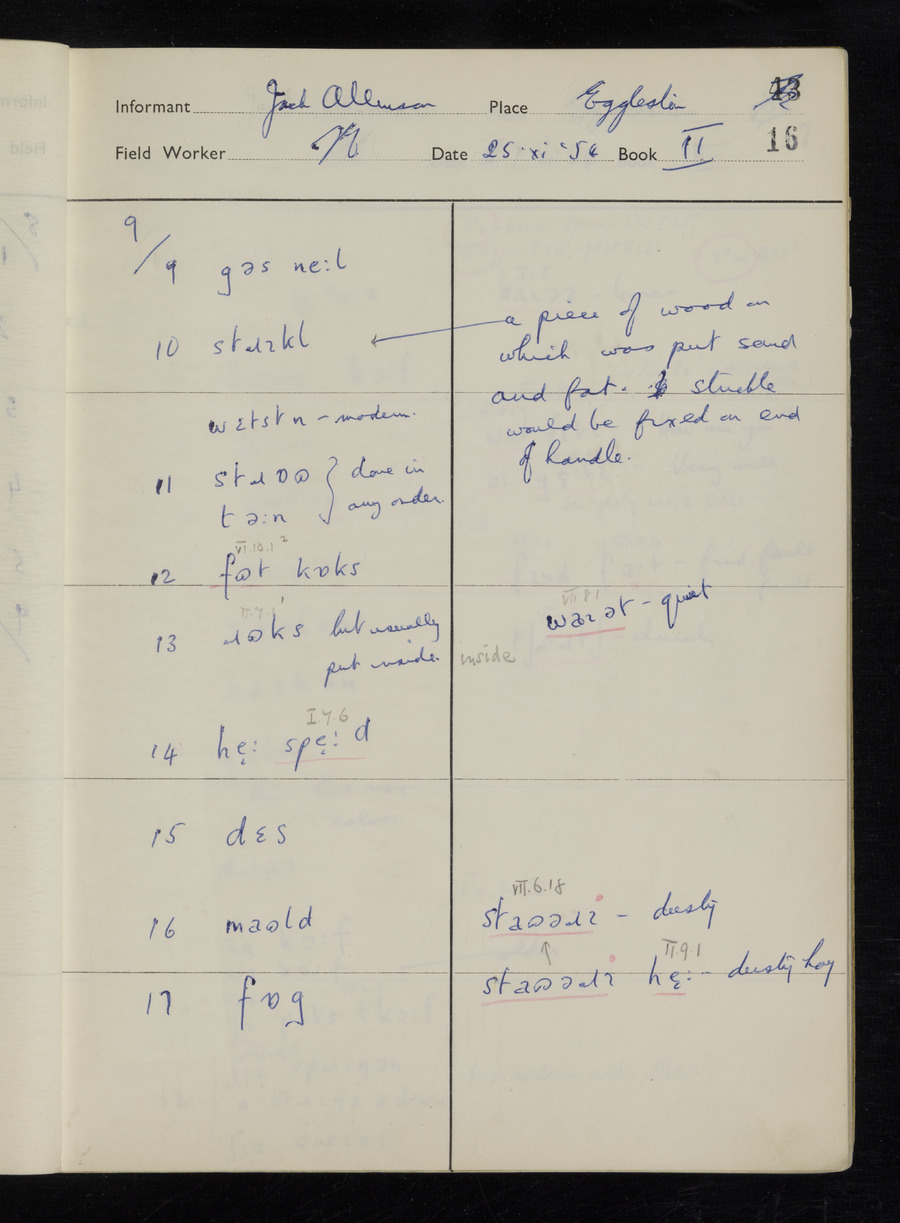 Informant Jack Allinson Place Eggleston 43
Field Worker Date 25·xi·54 Book II 16
9
/9 gəs ne:l
10 stɹɪkl a piece of wood on
which was put sand
and fat. stuckle
would be fixed on end
of handle.
wɛtstn – modern.
11 done in
tə:n any order.
VI.10.1²
12 fɷt kɒks
VII.8.1
waɪət – quiet
13 ɹɷks but usually
put inside. inside
I.7.6
14 hẹ: spẹ:d
15 dɛs
VII.6.18
16 maɷld staɷəɹɪ – dusty
II.9.1
17 fɒg staɷəɹɪ hẹ: – dusty hay